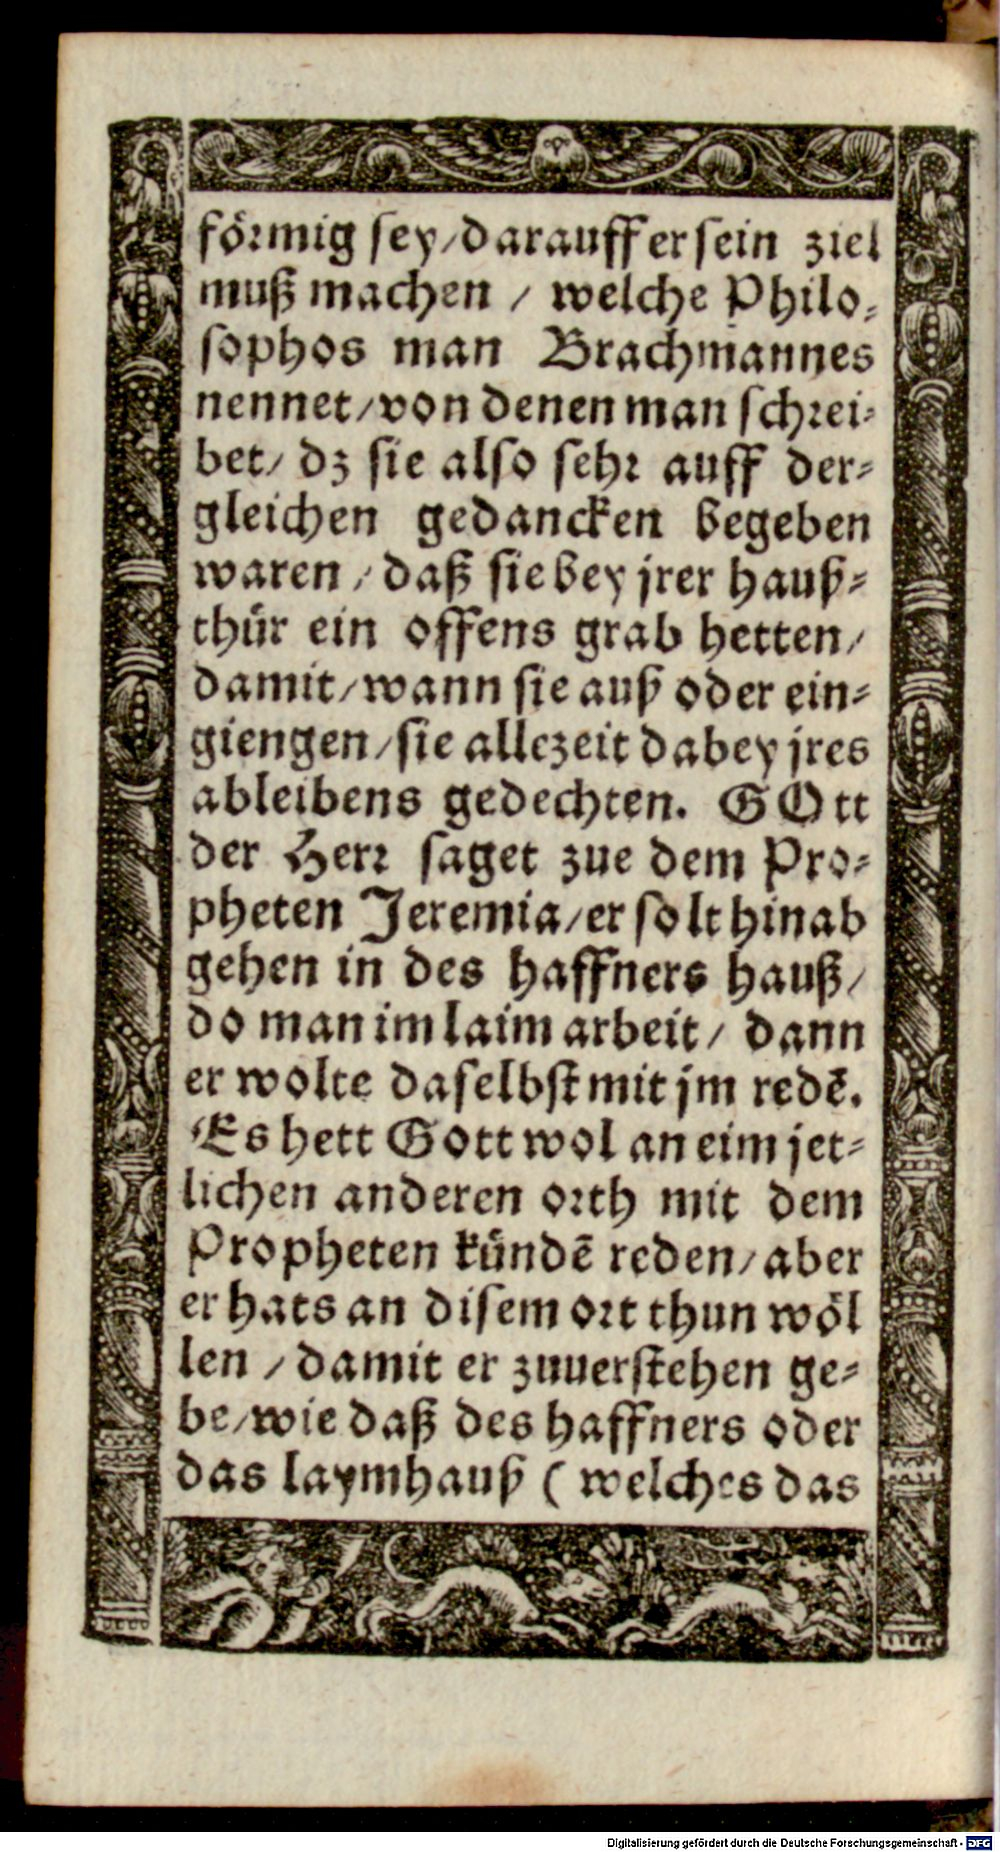 förmig sey/darauff er sein ziel
muß machen / welche Philo⸗
sophos man Brachmannes
nennet/von denen man schrei⸗
bet/ dz sie also sehr auff der⸗
gleichen gedancken begeben
waren / daß sie bey jrer hauß⸗
thür ein offens grab hetten/
damit/wann sie auß oder ein⸗
giengen/sie allezeit dabey jres
ableibens gedechten. GOtt
der Herr saget zue dem Pro⸗
pheten Jeremia/er solt hinab
gehen in des haffners hauß/
do man im laim arbeit/ dann
er wolte daselbst mit jm redē.
Es hett Gott wol an eim jet⸗
lichen anderen orth mit dem
Propheten kündē reden/aber
er hats an disem ort thun wöl
len / damit er zuuerstehen ge⸗
be/wie daß des haffners oder
das laymhauß ( welches das
Digitalisierung gefördert durch die Deutsche Forschungsgemeinschaft - DFG